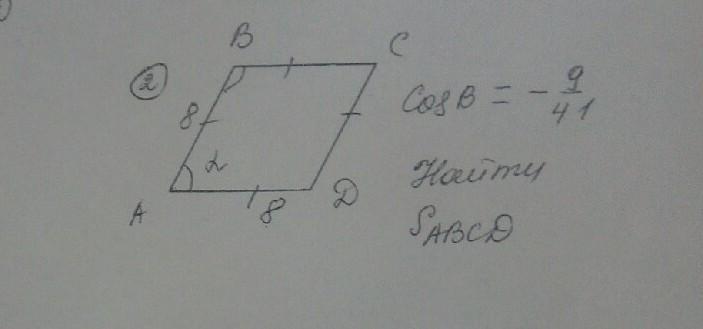 ②
B
C
8
α
A
8
D
cos B = - 9/41
Найти
S ABCD